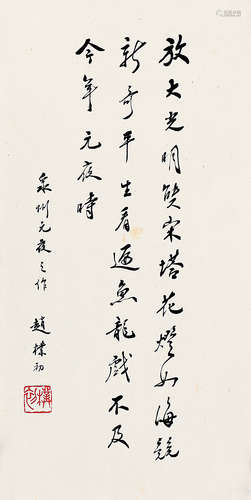 放大光明雙宋塔花燈如海競
新奇平生看遍魚龍戲不及
今年元夜時
泉州元夜之作
趙樸初